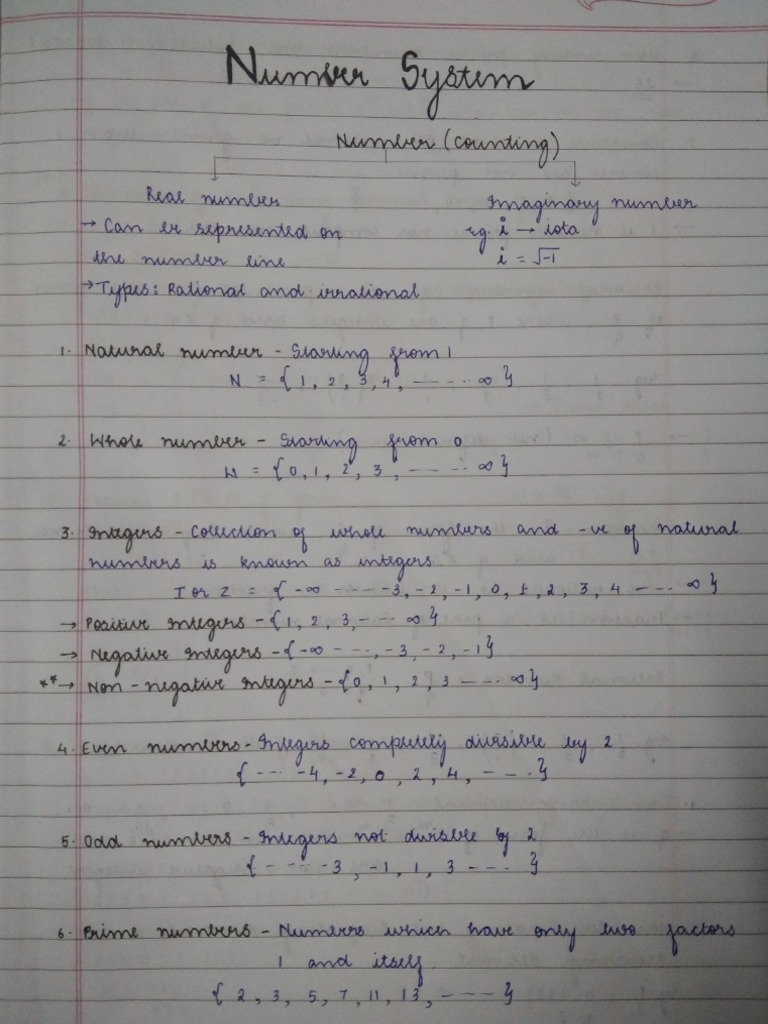 Number System
Number (counting)
Real number
→ Can be represented on
the number line
→ Types: Rational and irrational
Imaginary number
eg. i → iota
i = √-1
1. Natural number - Starting from 1
N = {1, 2, 3, 4, ----- ∞}
2. Whole number - Starting from 0
W = {0, 1, 2, 3, ----- ∞}
3. Integers - Collection of whole numbers and -ve of natural
numbers is known as integers.
I or Z = {-∞ ---- -3, -2, -1, 0, 1, 2, 3, 4 ---- ∞}
→ Positive Integers - {1, 2, 3, --- ∞}
→ Negative Integers - {-∞ ---, -3, -2, -1}
**→ Non-negative Integers - {0, 1, 2, 3 ---- ∞}
4. Even numbers - Integers completely divisible by 2
{--- -4, -2, 0, 2, 4, ----}
5. Odd numbers - Integers not divisible by 2
{---- -3, -1, 1, 3 ----}
6. Prime numbers - Numbers which have only two factors
1 and itself.
{2, 3, 5, 7, 11, 13, ----}